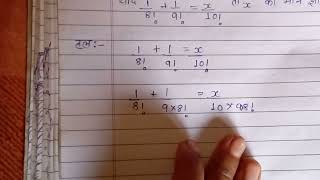 यदि 1/8! + 1/9! = x/10! तो x का मान
हल:-
1/8! + 1/9! = x/10!
1/8! + 1/9×8! = x/10×9×8!